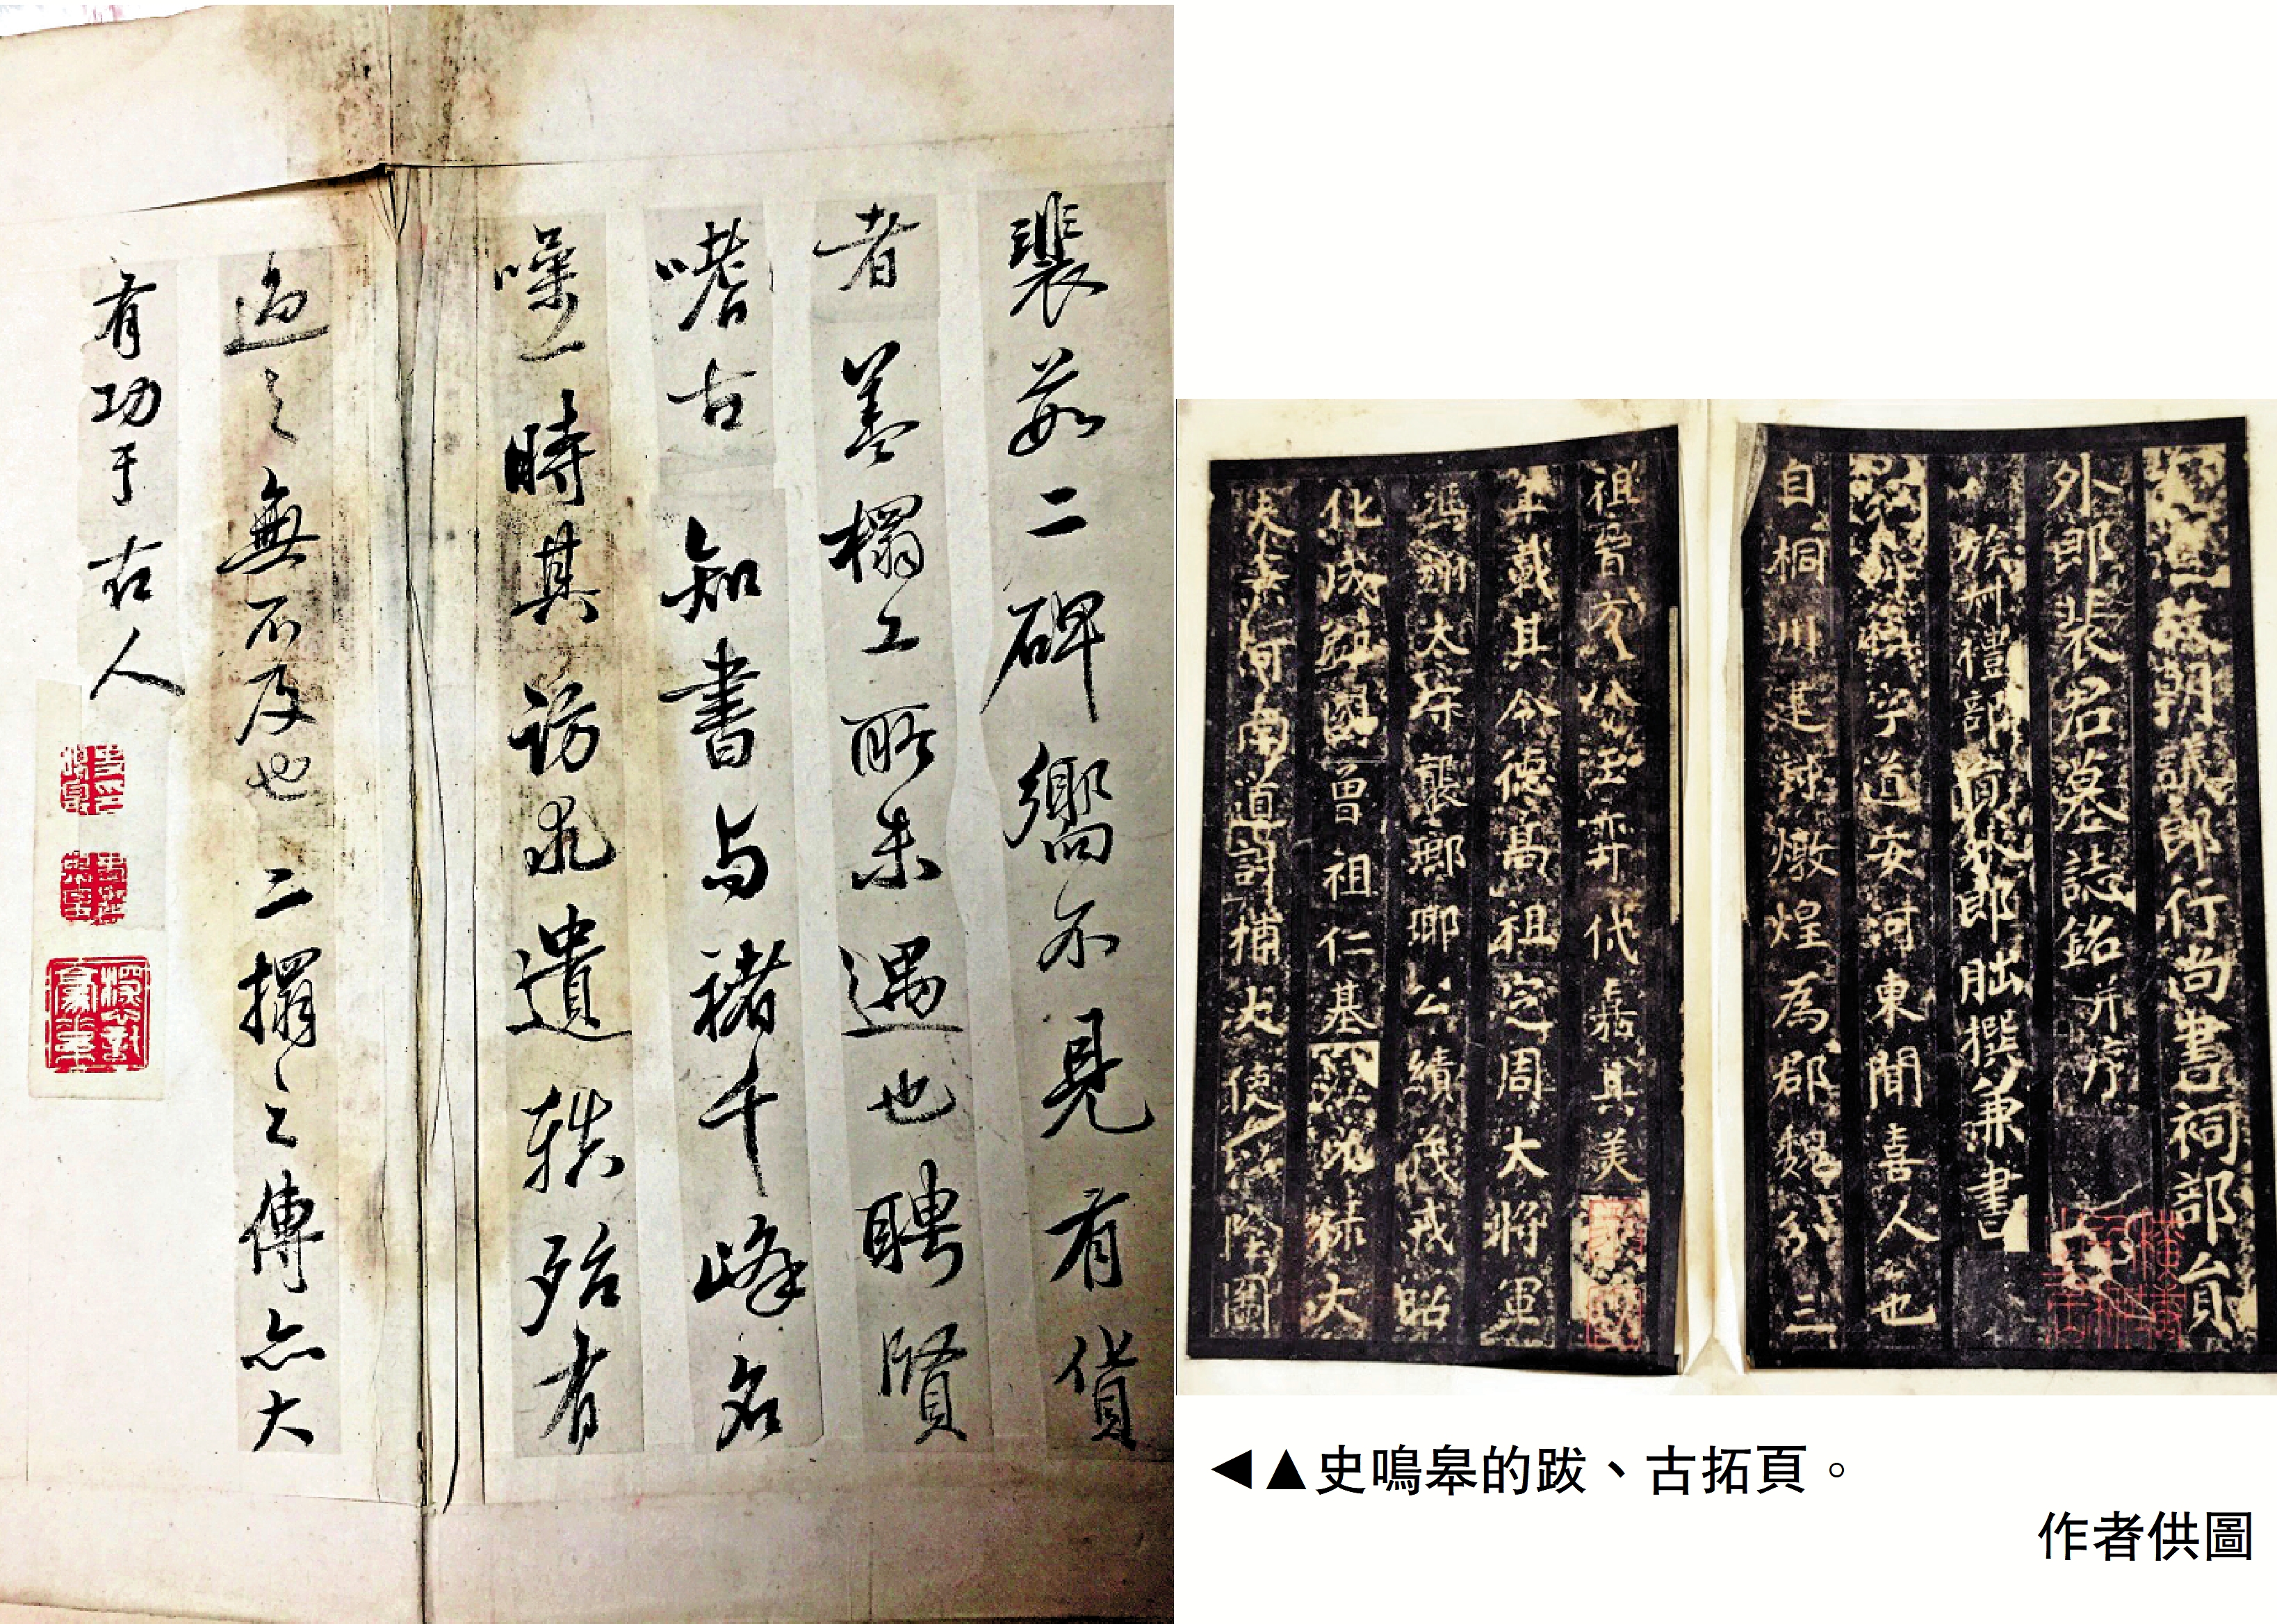 裴茹二碑嚮不見有貨
者蓋榻工所未遇也聘賢
嗜古知書与褚千峰名
噪一時其訪求遺軼殆有
過之無不及也二搨之傳亦大
有功于古人
故朝議郎行尚書祠部員
外郎裴君墓誌銘并序
族叔禮部員外郎朏撰兼書
稹字道安河東聞喜人也
自桐川建封燉煌為郡魏分三
祖晉方八王弈代嘉其美
年載其令德高祖定周大將軍
馮翊太守襲瑯瑘公績茂戎昭
化成緝國曾祖仁基隋光祿大
夫 河南道討捕大使
◀▲史鳴皋的跋、古拓頁。
作者供圖